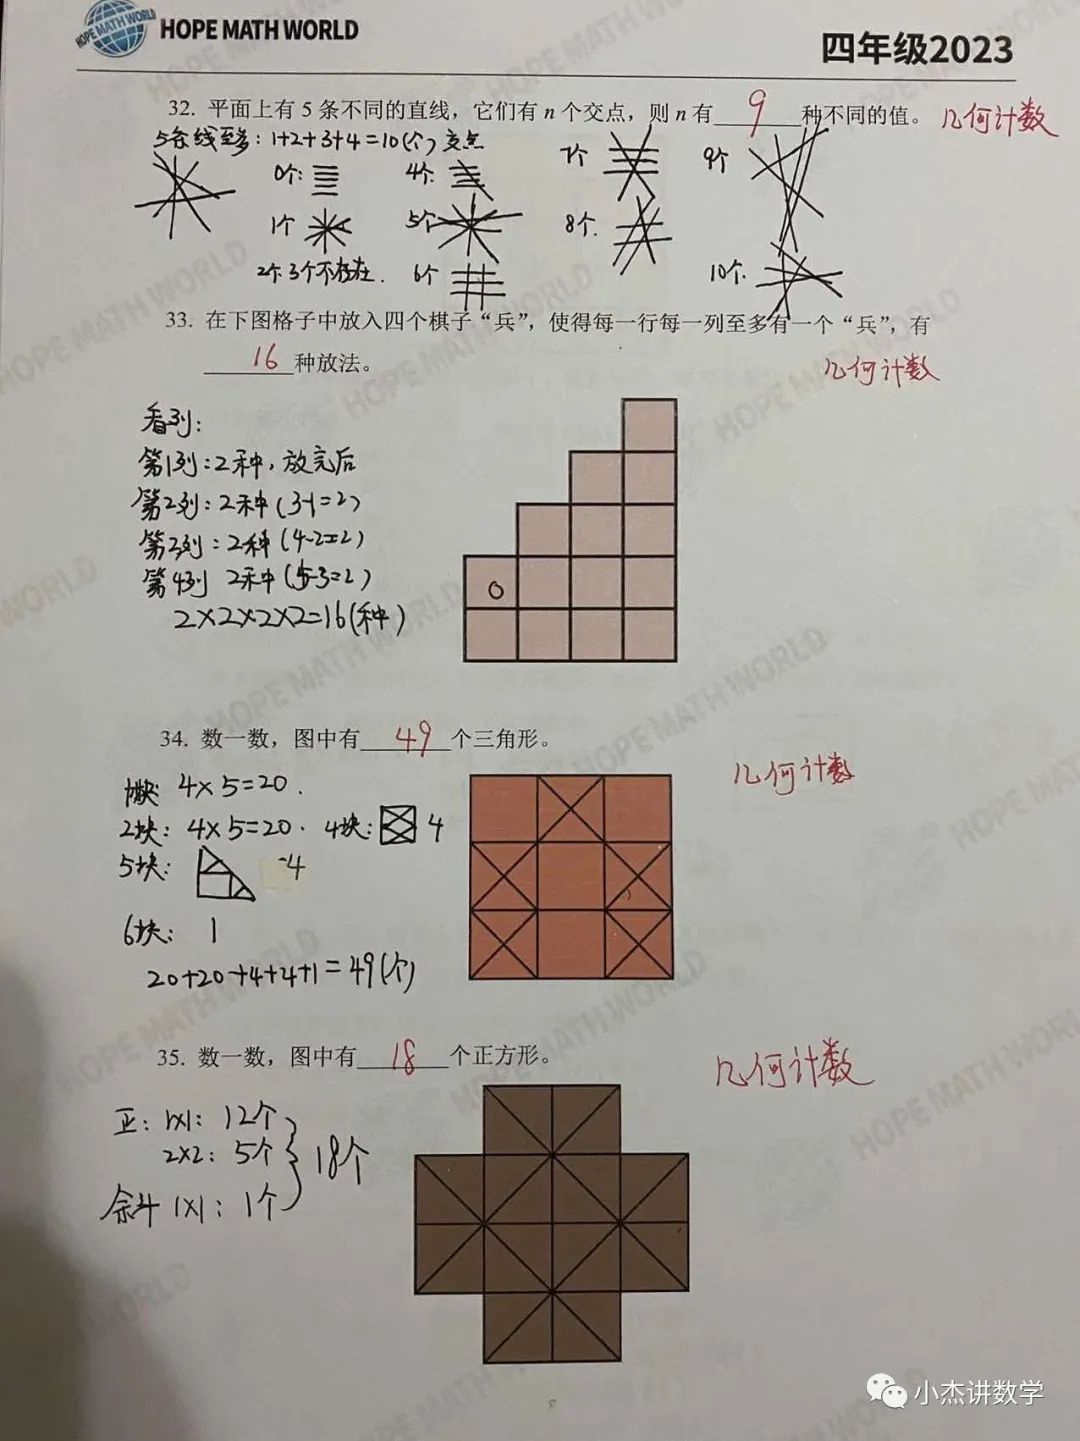 HOPE MATH WORLD
HOPE MATH WORLD
四年级2023
32. 平面上有 5 条不同的直线，它们有 n 个交点，则 n 有 9 种不同的值。 几何计数
5条线至多：1+2+3+4=10(个) 交点
0个：
4个
7个
9个
1个
5个
8个.
2个 3个不存在.
6个
10个.
33. 在下图格子中放入四个棋子“兵”，使得每一行每一列至多有一个“兵”，有
16 种放法。
几何计数
看列：
第1列：2种，放完后
第2列：2种 (3-1=2)
第3列：2种 (4-2=2)
第4列 2种 (5-3=2)
2×2×2×2=16(种)
0
34. 数一数，图中有 49 个三角形。
几何计数
1块 4×5=20.
2块：4×5=20. 4块： 4
5块： 4
6块： 1
20+20+4+4+1=49(个)
35. 数一数，图中有 18 个正方形。
几何计数
正：1×1：12个
2×2：5个
18个
斜 1×1：1个
小杰讲数学